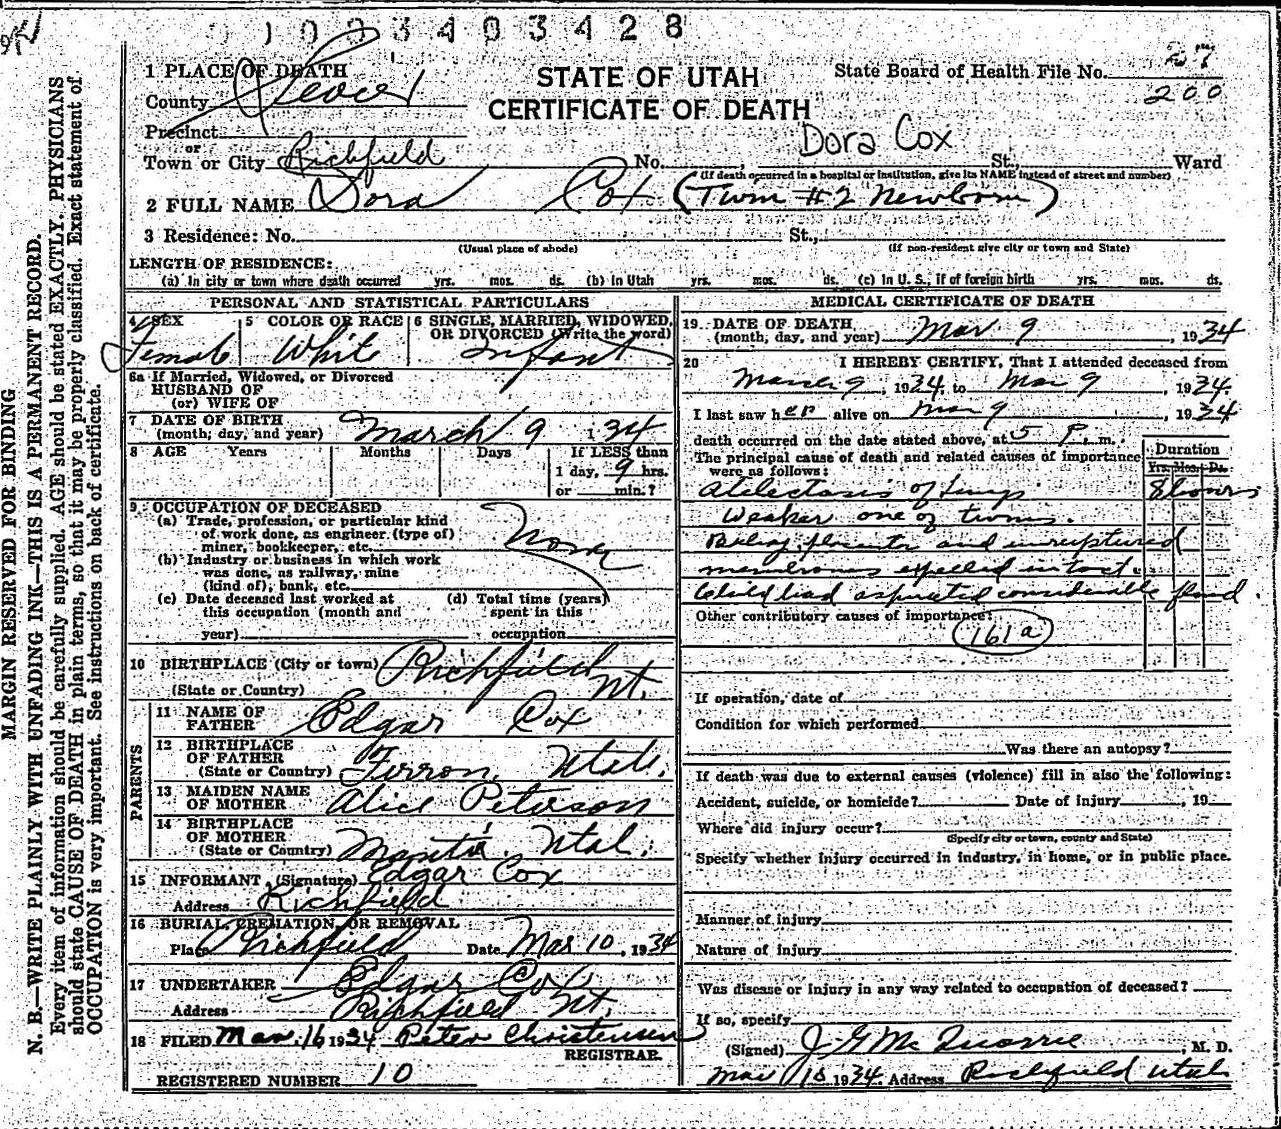 1 0 2 3 4 0 3 4 2 8
1 PLACE OF DEATH
STATE OF UTAH
CERTIFICATE OF DEATH
State Board of Health File No. 27
200
County Sevier
Precinct
or
Town or City Richfield No. , Dora Cox St., Ward
(If death occurred in a hospital or institution, give its NAME instead of street and number)
2 FULL NAME Dora Cox (Twin #2 Newborn)
3 Residence: No. St.,
(Usual place of abode) (If non-resident give city or town and State)
LENGTH OF RESIDENCE:
(a) In city or town where death occurred yrs. mos. ds. (b) In Utah yrs. mos. ds. (c) In U. S., if of foreign birth yrs. mos. ds.
PERSONAL AND STATISTICAL PARTICULARS
4 SEX Female
5 COLOR OR RACE White
6 SINGLE, MARRIED, WIDOWED, OR DIVORCED (Write the word) Infant
6a If Married, Widowed, or Divorced
HUSBAND OF
(or) WIFE OF
7 DATE OF BIRTH
(month, day, and year) March 9 1934
8 AGE Years Months Days If LESS than
1 day, 9 hrs.
or min.?
9 OCCUPATION OF DECEASED
(a) Trade, profession, or particular kind
of work done, as engineer (type of)
miner, bookkeeper, etc. None
(b) Industry or business in which work
was done, as railway, mine
(kind of); bank, etc.
(c) Date deceased last worked at
this occupation (month and
year)
(d) Total time (years)
spent in this
occupation
10 BIRTHPLACE (City or town) Richfield
(State or Country) Ut.
PARENTS
11 NAME OF
FATHER Edgar Cox
12 BIRTHPLACE
OF FATHER
(State or Country) Ferron, Utah.
13 MAIDEN NAME
OF MOTHER Alice Peterson
14 BIRTHPLACE
OF MOTHER
(State or Country) Manti Utah.
15 INFORMANT (Signature) Edgar Cox
Address Richfield
16 BURIAL, CREMATION, OR REMOVAL
Place Richfield Date Mar 10, 1934
17 UNDERTAKER Edgar Cox
Address Richfield Ut.
18 FILED Mar. 16 1934 Peter Christensen
REGISTRAR.
REGISTERED NUMBER 10
MEDICAL CERTIFICATE OF DEATH
19. DATE OF DEATH
(month, day, and year) Mar 9, 1934
20 I HEREBY CERTIFY, That I attended deceased from
March 9, 1934. to Mar 9 1934.
I last saw her alive on Mar 9, 1934
death occurred on the date stated above, at 5 P. m.
The principal cause of death and related causes of importance
were as follows:
Duration
Yrs. Mos. Ds.
Atelectasis of lungs 8 hours
Weaker one of twins.
placenta and unruptured
membranes expelled intact.
Child had aspirated considerable fluid.
Other contributory causes of importance:
161a
If operation, date of
Condition for which performed
Was there an autopsy?
If death was due to external causes (violence) fill in also the following:
Accident, suicide, or homicide? Date of injury , 19
Where did injury occur?
(Specify city or town, county and State)
Specify whether injury occurred in industry, in home, or in public place.
Manner of injury
Nature of injury
Was disease or injury in any way related to occupation of deceased?
If so, specify
(Signed) J. G. McQuarrie, M. D.
Mar 1934. Address Richfield Utah
MARGIN RESERVED FOR BINDING
N. B.—WRITE PLAINLY WITH UNFADING INK—THIS IS A PERMANENT RECORD.
Every item of information should be carefully supplied. AGE should be stated EXACTLY. PHYSICIANS
should state CAUSE OF DEATH in plain terms, so that it may be properly classified. Exact statement of
OCCUPATION is very important. See instructions on back of certificate.